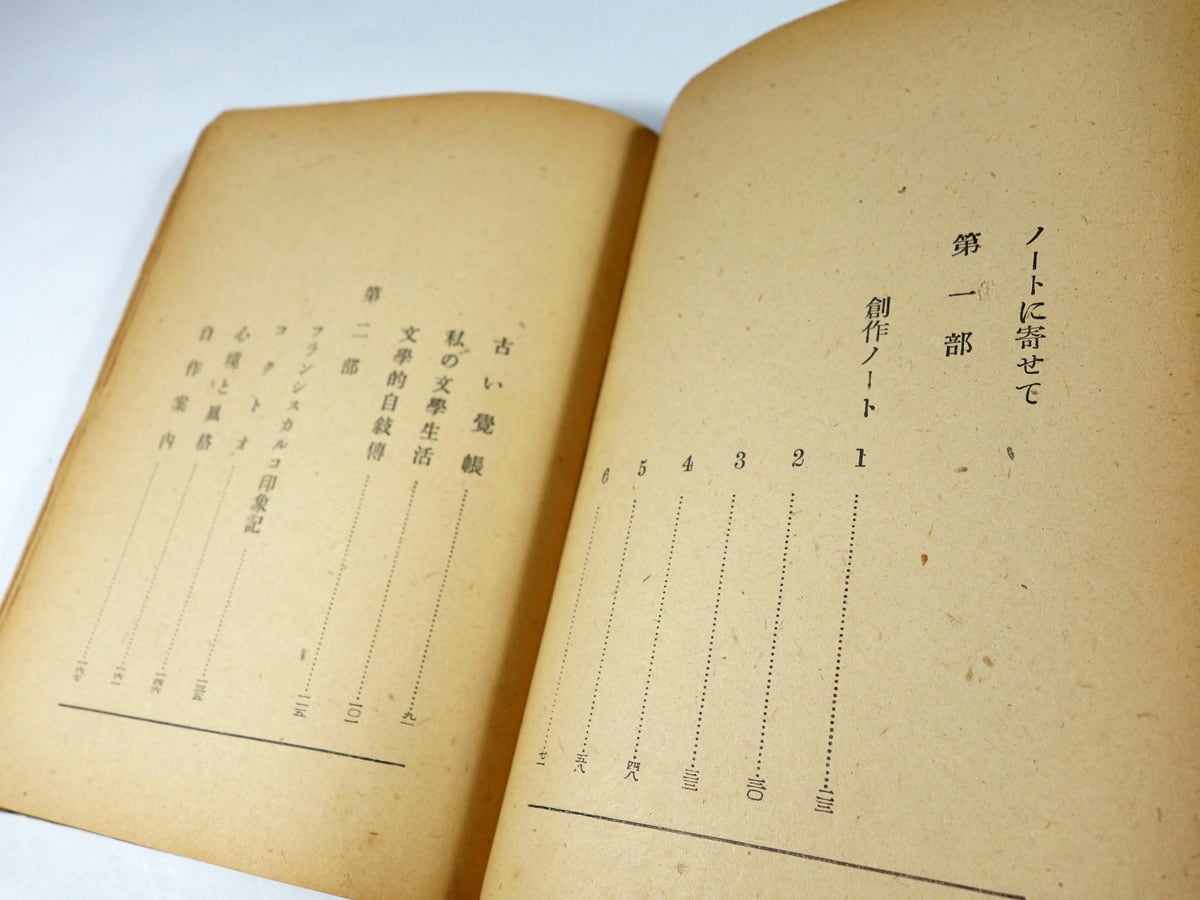 ノートに寄せて
第一部
創作ノート
1 …… 二三
2 …… 三〇
3 …… 三三
4 …… 四八
5 …… 五八
6 …… 七一
古い覺帳 …… 九一
私の文學生活 …… 一〇一
文學的自敍傳 …… 一一五
第二部
フランシスカルコ印象記 …… 一三五
コクトオ …… 一四六
心境と風格 …… 一六一
自作案内 …… 一六七